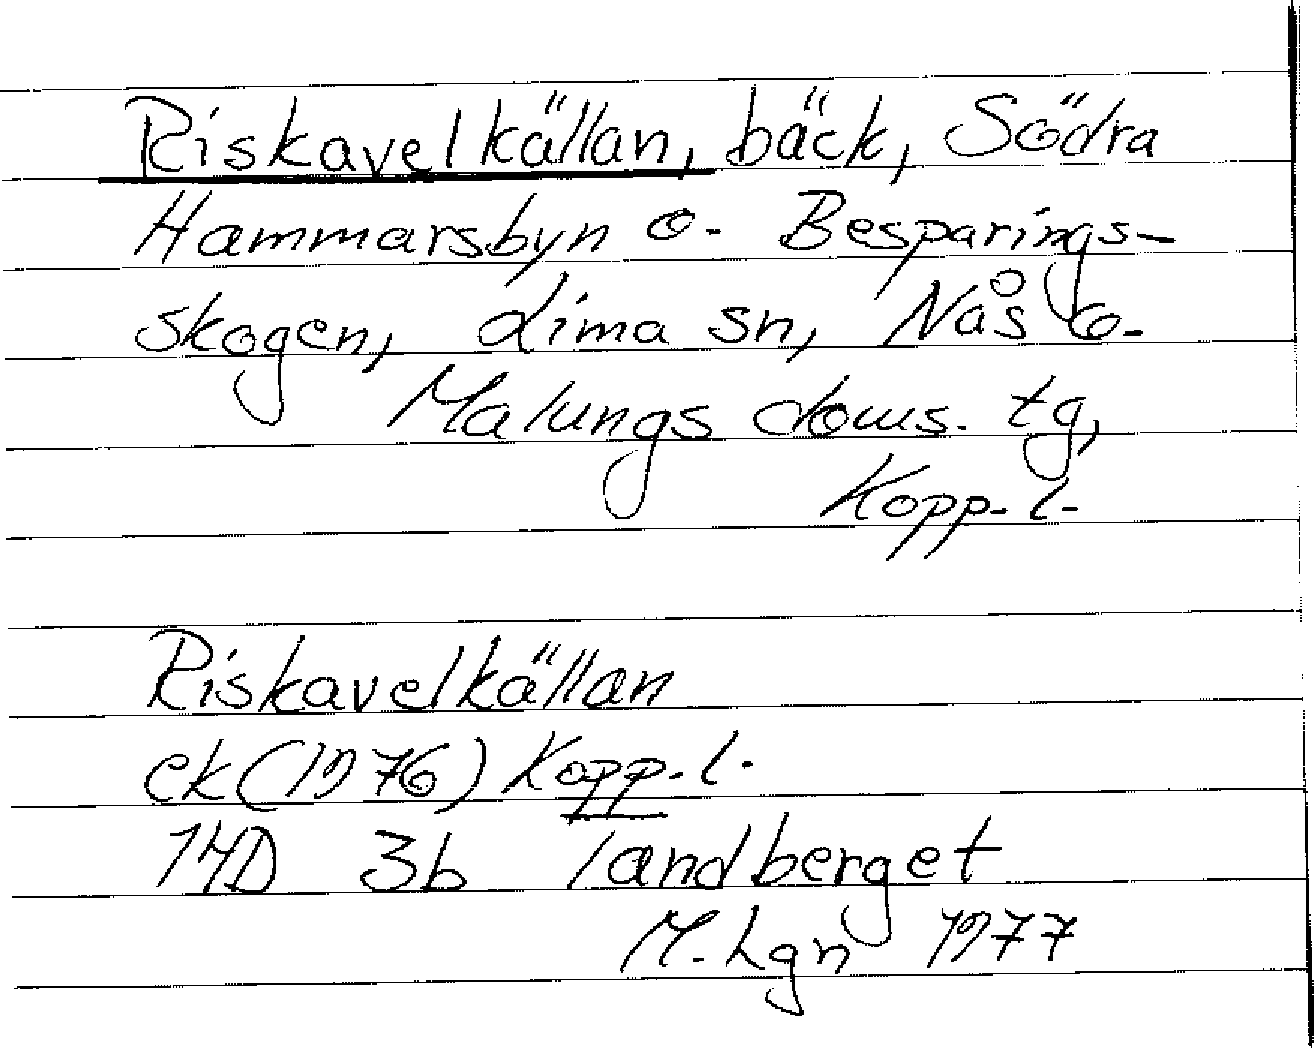 Riskavelkällan, bäck, Södra
Hammarsbyn o. Besparings-
skogen, Lima sn, Nås o.
Malungs doms. tg,
Kopp. l.
Riskavelkällan
ek (1976) Kopp. l.
14D 3b Tandberget
M. Lgn 1977